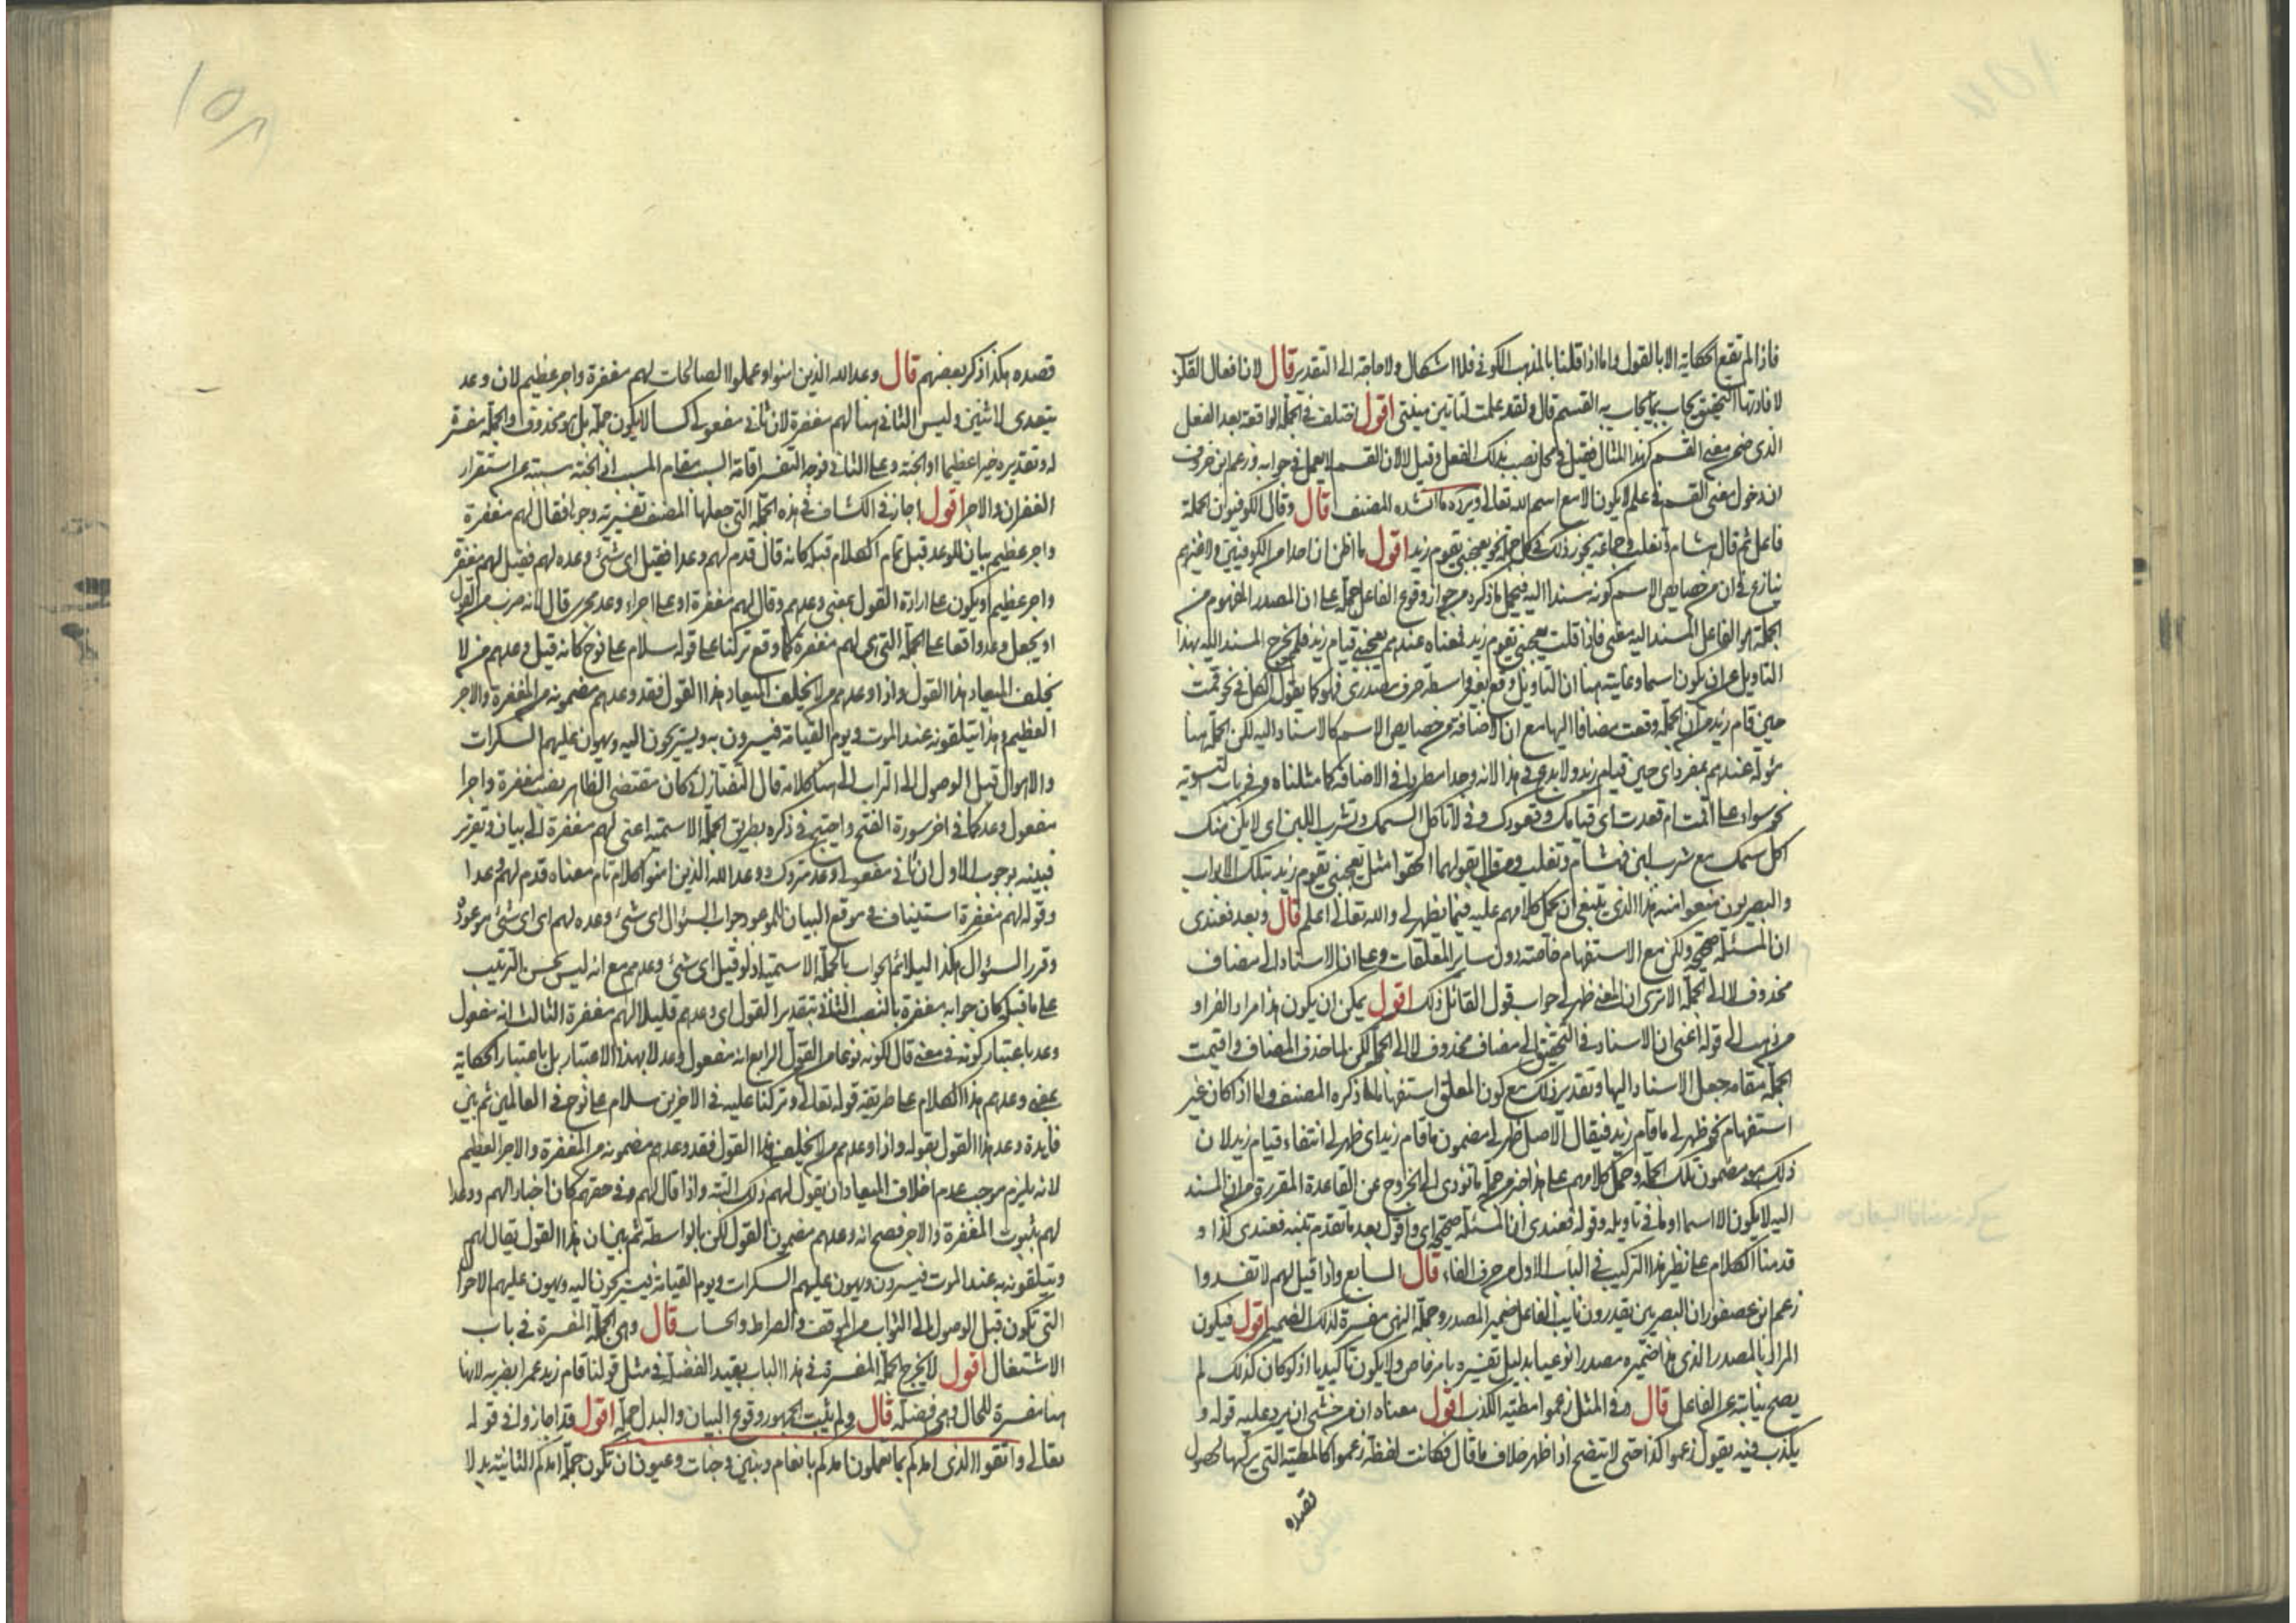 فاذا لم تقع الحكاية الا بالقول واما اذا قلنا بالمذهب الكوفي فلا اشكال ولا حاجة الى التقدير قال لان افعال القلوب
لافادتها التحقيق تجاب بما يجاب به القسم قال ولقد علمت لتاتين منيتي اقول اختلف في الجملة الواقعة بعد الفعل
الذي ضمن معنى القسم كهذا المثال فقيل في محل نصب بذلك الفعل وقيل لا لان القسم لا يعمل في جوابه وزعم ابن خروف
ان دخول معنى القسم في علم لا يكون الا مع اسم الله تعالى ويرده ما انشده المصنف قال وقال الكوفيون الجملة
فاعل ثم قال هشام وثعلب وجماعة يجوز ذلك في كل جملة نحو يعجبني يقوم زيد اقول ما اظن ان احدا من الكوفيين ولا غيرهم
ينازع في ان من خصايص الاسم كونه مسندا اليه فيحمل ما ذكره من جواز وقوع الفاعل جملة على ان المصدر المفهوم من
الجملة هو الفاعل المسند اليه معنى فاذا قلت يعجبني يقوم زيد فمعناه عندهم يعجبني قيام زيد فلم يخرج المسند اليه بهذا
التاويل عن ان يكون اسما وغايته هنا ان التاويل وقع بغير واسطة حرف مصدري فهو كما يقول الكل في نحو قمت
حين قام زيد من ان الجملة وقعت مضافا اليها مع ان الاضافة من خصايص الاسم كالاسناد اليه لكن الجملة هنا
مؤولة عندهم بمفرد اي حين قيام زيد ولا بدع في هذا لانه وجد مطردا في الاضافة كما مثلناه وفي باب التسوية
نحو سواء علي اقمت ام قعدت اي قيامك وقعودك وفي لا تاكل السمك وتشرب اللبن اي لا يكن منك
اكل سمك مع شرب لبن فهشام وثعلب ومن قال بقولهما الحقوا مثل يعجبني يقوم زيد بتلك الابواب
والبصريون منعوا منه هذا الذي ينبغي ان يحمل كلامهم عليه فيما يظهر لي والله تعالى اعلم قال وبعد فعندي
ان المسئلة صحيحة ولكن مع الاستفهام خاصة دون ساير المعلقات وعلى ان الاسناد الى مضاف
محذوف لا الى الجملة الا ترى ان المعنى ظهر لي جواب قول القائل ذلك اقول يمكن ان يكون هذا مراد الفراء و
من ذهب الى قوله اعني ان الاسناد في التحقيق الى مضاف محذوف لا الى الجملة لكن لما حذف المضاف واقيمت
الجملة مقامه جعل الاسناد اليها وتقدير ذلك مع كون المعلق استفهاما ما ذكره المصنف واما اذا كان غير
استفهام نحو ظهر لي ما قام زيد فيقال الاصل ظهر لي مضمون ما قام زيد اي ظهر لي انتفاء قيام زيد لان
ذلك هو مضمون تلك الجملة وحمل كلامهم على هذا خير من حمله ما يؤدي الى الخروج عن القاعدة المقررة من ان المسند
اليه لا يكون الا اسما او ما في تاويله وقوله فعندي ان المسئلة صحيحة اي واقول بعد ما تقدم تنبه فعندي كذا و
قدمنا الكلام على نظير هذا التركيب في الباب الاول من حرف الفاء قال السابع واذا قيل لهم لا تفسدوا
زعم ابن عصفور ان البصريين يقدرون نايب الفاعل ضمير المصدر وجملة النهي مفسرة لذلك الضمير اقول فيكون
المراد بالمصدر الذي هذا ضميره مصدرا نوعيا بدليل تفسيره بامر خاص ولا يكون تاكيديا اذ لو كان كذلك لم
يصح نيابته عن الفاعل قال وفي المثل زعموا مطية الكذب اقول معناه ان من خشي ان يرد عليه قوله و
يكذب فيه يقول زعموا كذا حتى لا يتضح اذا ظهر خلاف ما قال فكانت لفظة زعموا كالمطية التي يركبها لحصول
قصده
قصده هكذا ذكر بعضهم قال وعد الله الذين امنوا وعملوا الصالحات لهم مغفرة واجر عظيم لان وعد
يتعدى لاثنين وليس الثاني هنا لهم مغفرة لان ثاني مفعولي كسا لا يكون جملة بل هو محذوف والجملة مفسرة
له وتقديره خيرا عظيما او الجنة وعلى الثاني فوجه التفسير اقامة السبب مقام المسبب اذ الجنة مسببة عن استقرار
الغفران والاجر اقول اجاز في الكشاف في هذه الجملة التي جعلها المصنف تفسيرية وجوها فقال لهم مغفرة
واجر عظيم بيان للوعد قبل تمام الكلام قبله كانه قال قدم لهم وعدا فقيل اي شئ وعده لهم فقيل لهم مغفرة
واجر عظيم او يكون على ارادة القول بمعنى وعدهم وقال لهم مغفرة او على اجراء وعد مجرى قال لانه ضرب من القول
او يجعل وعد واقعا على الجملة التي هي لهم مغفرة كما وقع تركنا على قوله سلام على نوح كانه قيل وعدهم من لا
يخلف الميعاد هذا القول واذا وعدهم من لا يخلف الميعاد هذا القول فقد وعدهم مضمونه من المغفرة والاجر
العظيم وهذا يتلقونه عند الموت ويوم القيامة فيسرون به ويستريحون اليه ويهون عليهم السكرات
والاهوال قبل الوصول الى التراب الى هنا كلامه قال التفتازاني كان مقتضى الظاهر نصب مغفرة واجرا
مفعول وعد كما في اخر سورة الفتح واحتيج في ذكره بطريق الجملة الاسمية اعني لهم مغفرة الى بيان وتقرير
فبينه بوجوه الاول ان ثاني مفعولي وعد متروك ووعد الله الذين امنوا كلام تام معناه قدم لهم وعدا
وقوله لهم مغفرة استيناف في موقع البيان للموعود جواب السؤال اي شئ وعده لهم اي اي شئ موعوده
وقرر السؤال هكذا ليلائم الجواب بالجملة الاسمية اذ لو قيل اي شئ وعدهم مع انه ليس بحسن الترتيب
على ما قبله كان جوابه مغفرة بالنصب الثاني بتقدير القول اي وعدهم قايلا لهم مغفرة الثالث انه مفعول
وعد باعتبار كونه في معنى قال لكونه نوعا من القول الرابع انه مفعول وعد لا بهذا الاعتبار بل باعتبار الحكاية
بمعنى وعدهم هذا الكلام على طريقة قوله تعالى وتركنا عليه في الاخرين سلام على نوح في العالمين ثم بين
فايدة وعد هذا القول بقوله واذا وعدهم من لا يخلف هذا القول فقد وعدهم مضمونه من المغفرة والاجر العظيم
لانه يلزم بموجب عدم اخلاف الميعاد ان يقول لهم ذلك البتة واذا قال لهم وفي حقهم كان اخبارا لهم ووعدا
لهم بثبوت المغفرة والاجر فصح انه وعدهم مضمون القول لكن بالواسطة ثم بين ان هذا القول يقال لهم
ويتلقونه به عند الموت فيسرون ويهون عليهم السكرات ويوم القيامة فيستريحون اليه ويهون عليهم الاهوال
التي تكون قبل الوصول الى الثواب من الموقف والصراط والحساب قال وهي الجملة المفسرة في باب
الاشتغال اقول لا يخرج الجملة المفسرة في هذا الباب بقيد الفضلة في مثل قولنا قام زيد عمرا يضربه لانها
هنا مفسرة للحال وهي فضلة قال ولم يثبت الجمهور وقوع البيان والبدل جملة اقول قد اجازوا في قوله
تعالى واتقوا الذي امدكم بما تعملون امدكم بانعام وبنين وجنات وعيون ان تكون جملة امدكم الثانية بدلا